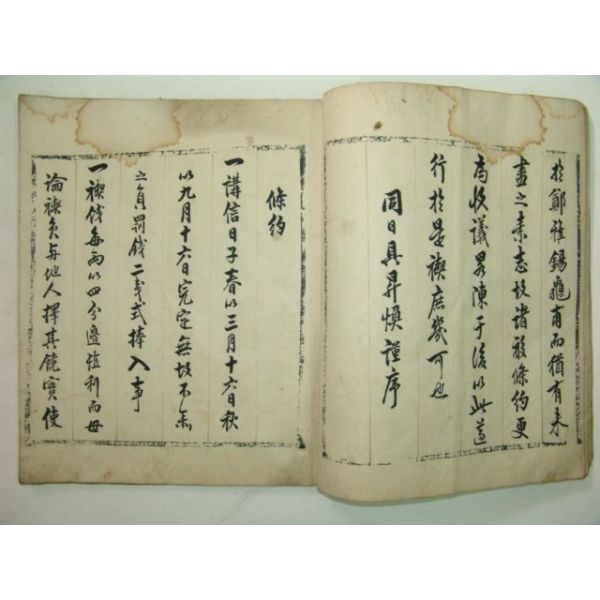 於鄭程錫龜甫而猶有未
盡之素志故諸般條約更
爲收議畧陳于後以此遵
行於是禊庶幾可也
同日具昇煥謹序
條約
一講信日子春以三月十六日秋
以九月十六日完定無故不參
之員罰錢二戔式捧入事
一禊錢每兩以四分邊殖利而毋
論禊員与他人擇其饒實使